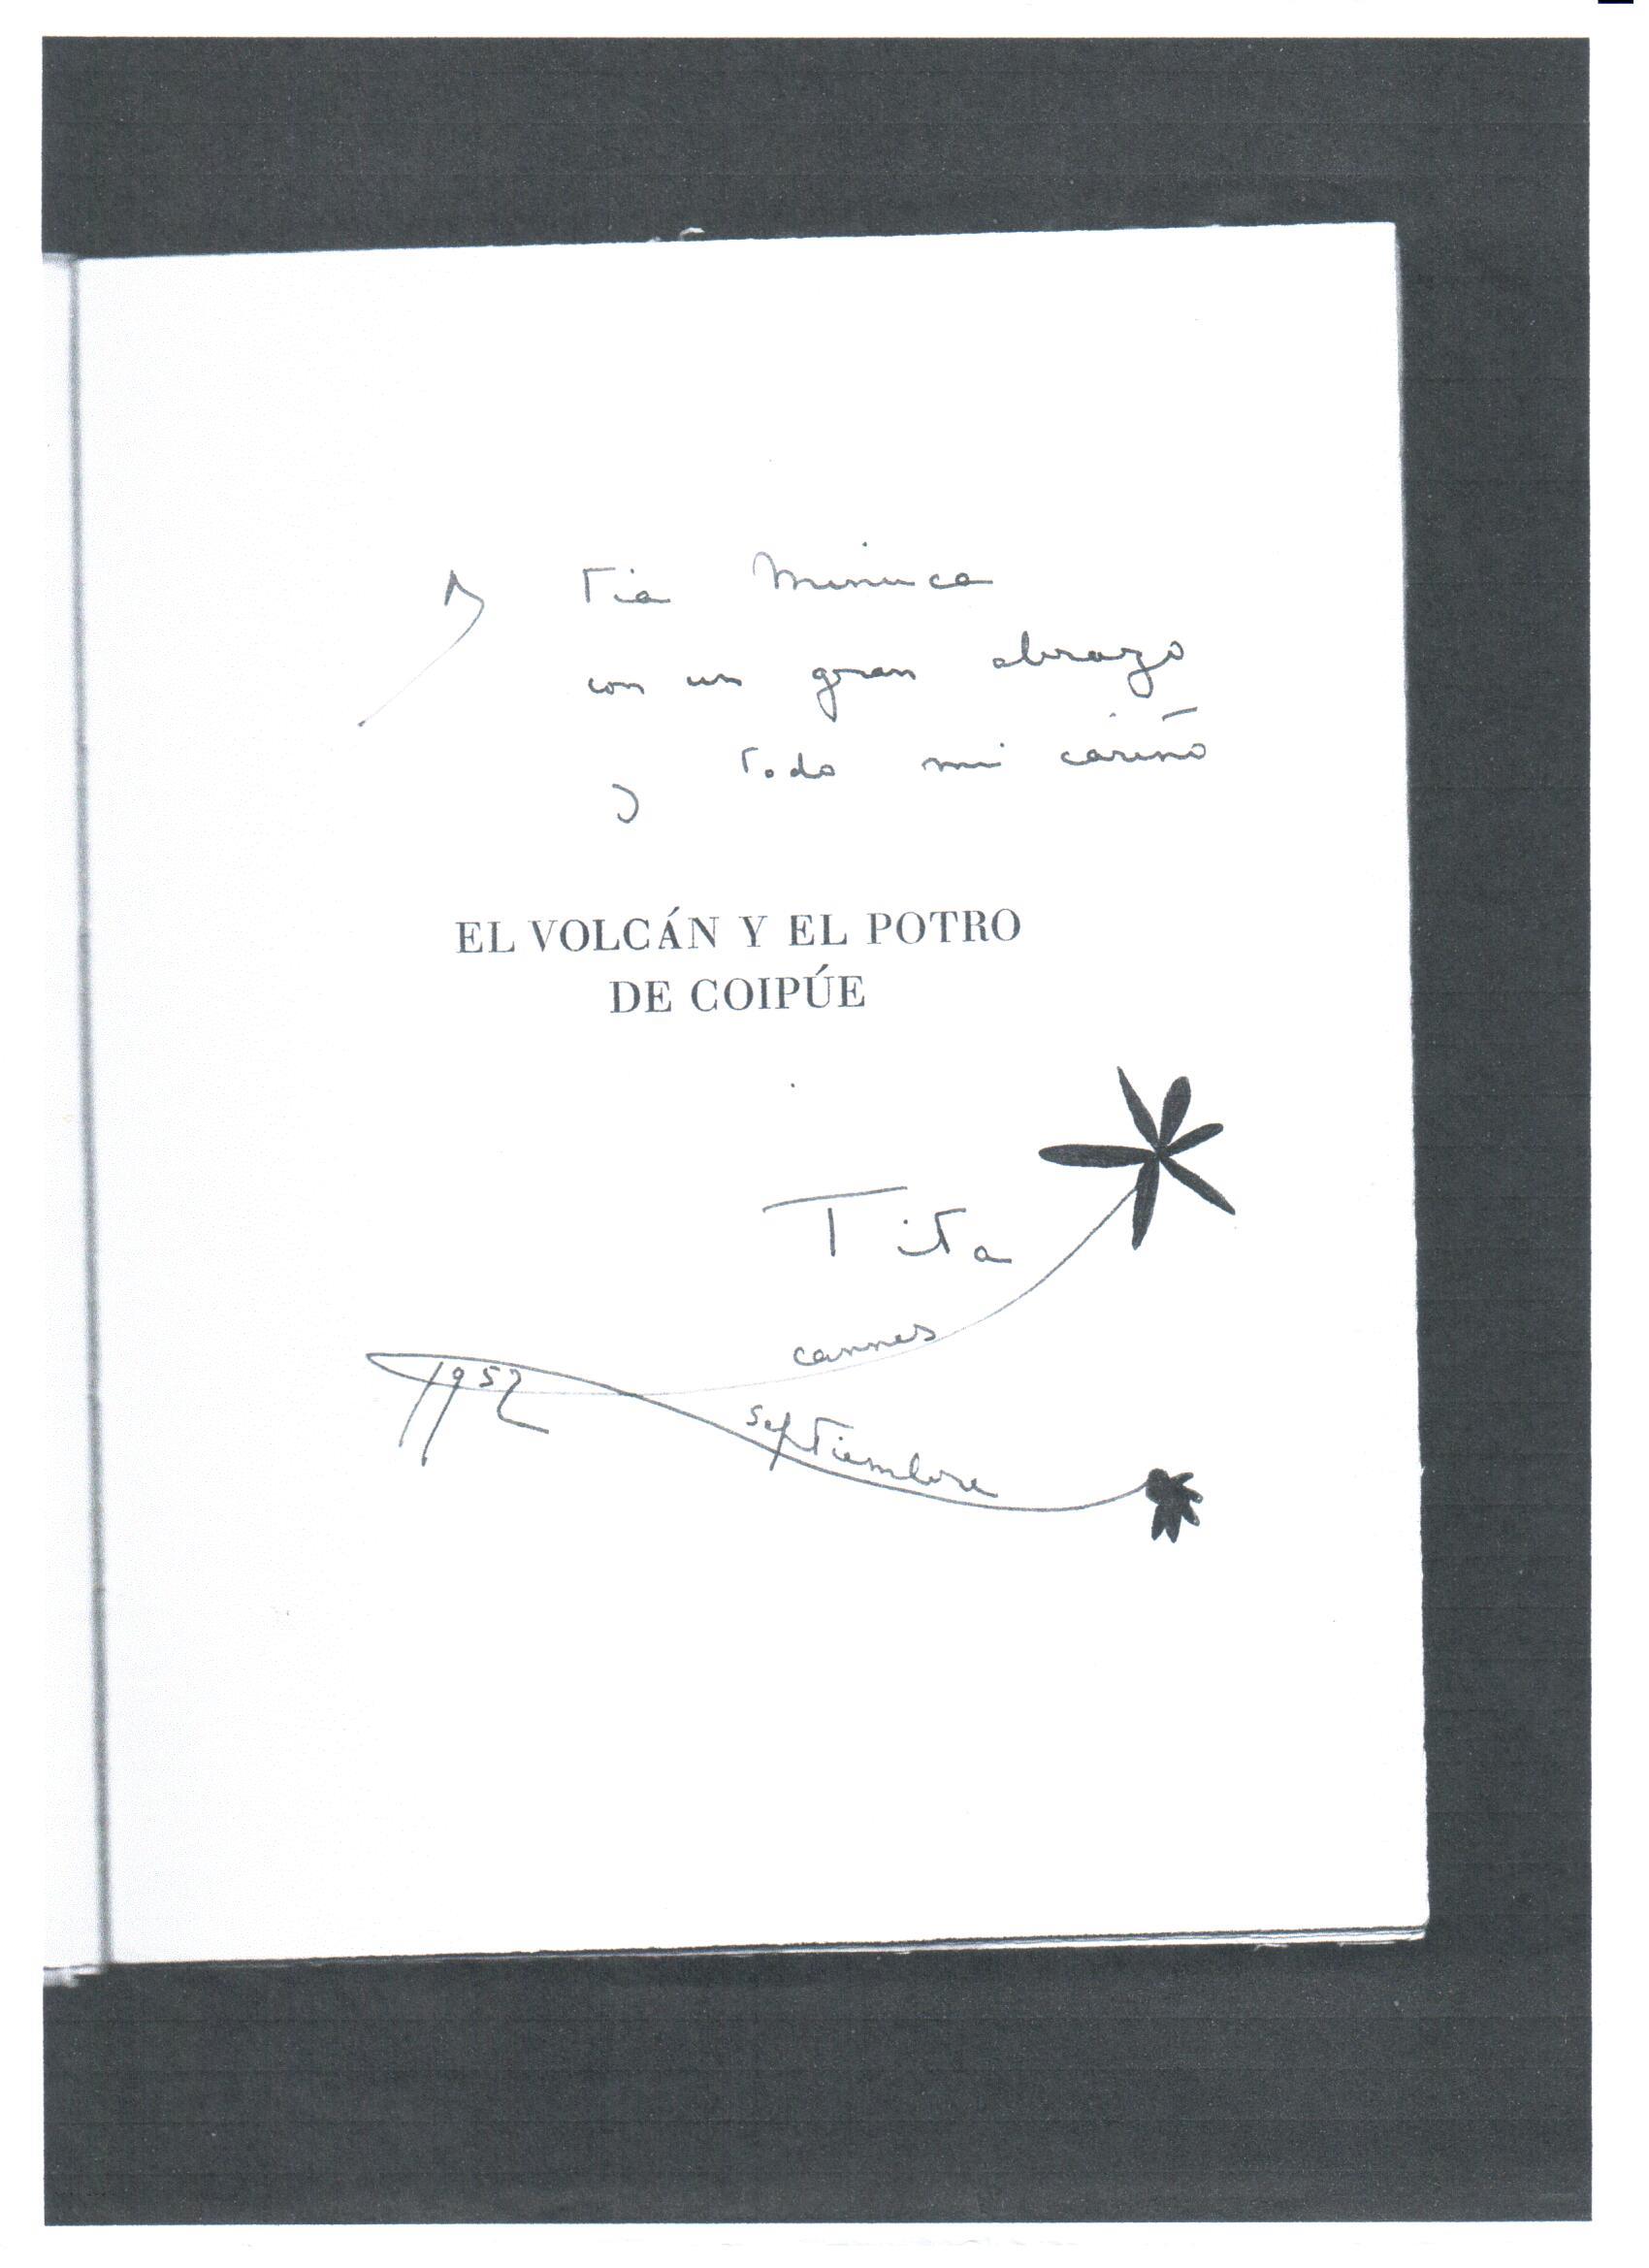 A tia Minuca
con un gran abrazo
y todo mi cariño
EL VOLCÁN Y EL POTRO
DE COIPÚE
Tita
cannes
1952
septiembre